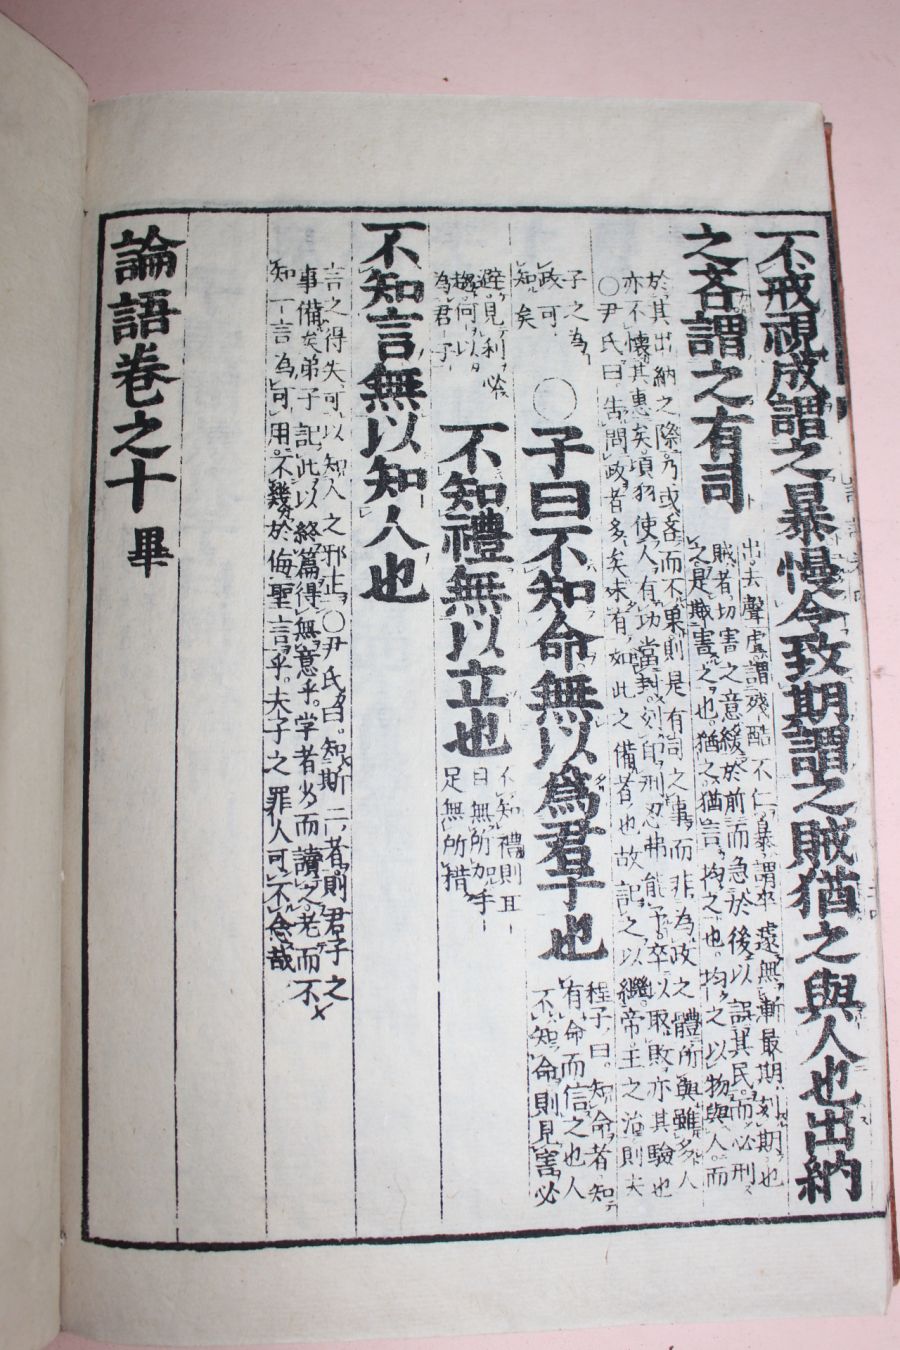 不戒視成謂之暴慢令致期謂之賊猶之與人也出納
之吝謂之有司
出去聲虐謂殘酷不仁暴謂卒遽無漸致期刻期也
賊者切害之意緩於前而急於後以誤其民而必刑
之是賊害之也猶之猶言均之也均之以物與人而
於其出納之際乃或吝而不果則是有司之事而非為政之體所與雖多人
亦不懷其惠矣項羽使人有功當封刻印刓忍弗能予卒以取敗亦其驗也
○尹氏曰告問政者多矣未有如此之備者也故記之以繼帝王之治則夫
子之為
政可
知矣
○子曰不知命無以爲君子也
程子曰知命者知
有命而信之也人
不知命則見害必
避見利必
趨何以
為君子
不知禮無以立也
不知禮則耳
目無所加手
足無所措
不知言無以知人也
言之得失可以知人之邪正○尹氏曰知斯三者則君子之
事備矣弟子記此以終篇得無意乎学者少而讀之老而不
知一言為可用不幾於侮聖言乎夫子之罪人可不念哉
論語卷之十 畢